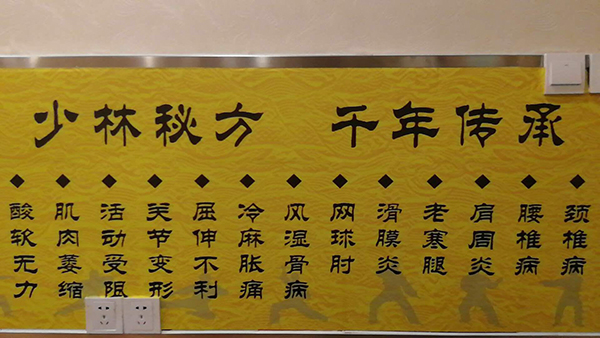 少林秘方 千年传承
颈椎病
腰椎病
肩周炎
老寒腿
滑膜炎
网球肘
风湿骨病
冷麻胀痛
屈伸不利
关节变形
活动受阻
肌肉萎缩
酸软无力